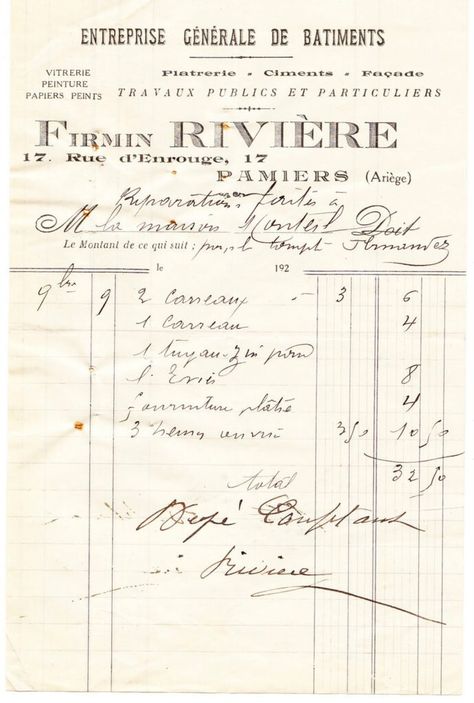 ENTREPRISE GÉNÉRALE DE BATIMENTS
VITRERIE
PEINTURE
PAPIERS PEINTS
Platrerie - Ciments - Façade
TRAVAUX PUBLICS ET PARTICULIERS
FIRMIN RIVIÈRE
17. Rue d'Enrouge, 17
PAMIERS (Ariège)
Réparations faites à
M la maison Monteil Doit
Le Montant de ce qui suit : par le compte Fernandez
le 192
9bre 9 2 carreaux - 3 6
1 carreau 4
1 tuyau zin pour
l'Evié 8
fourniture plâtre 4
3 heures ouvrié 3 50 10 50
total 32 50
Payé Comptant
Rivière